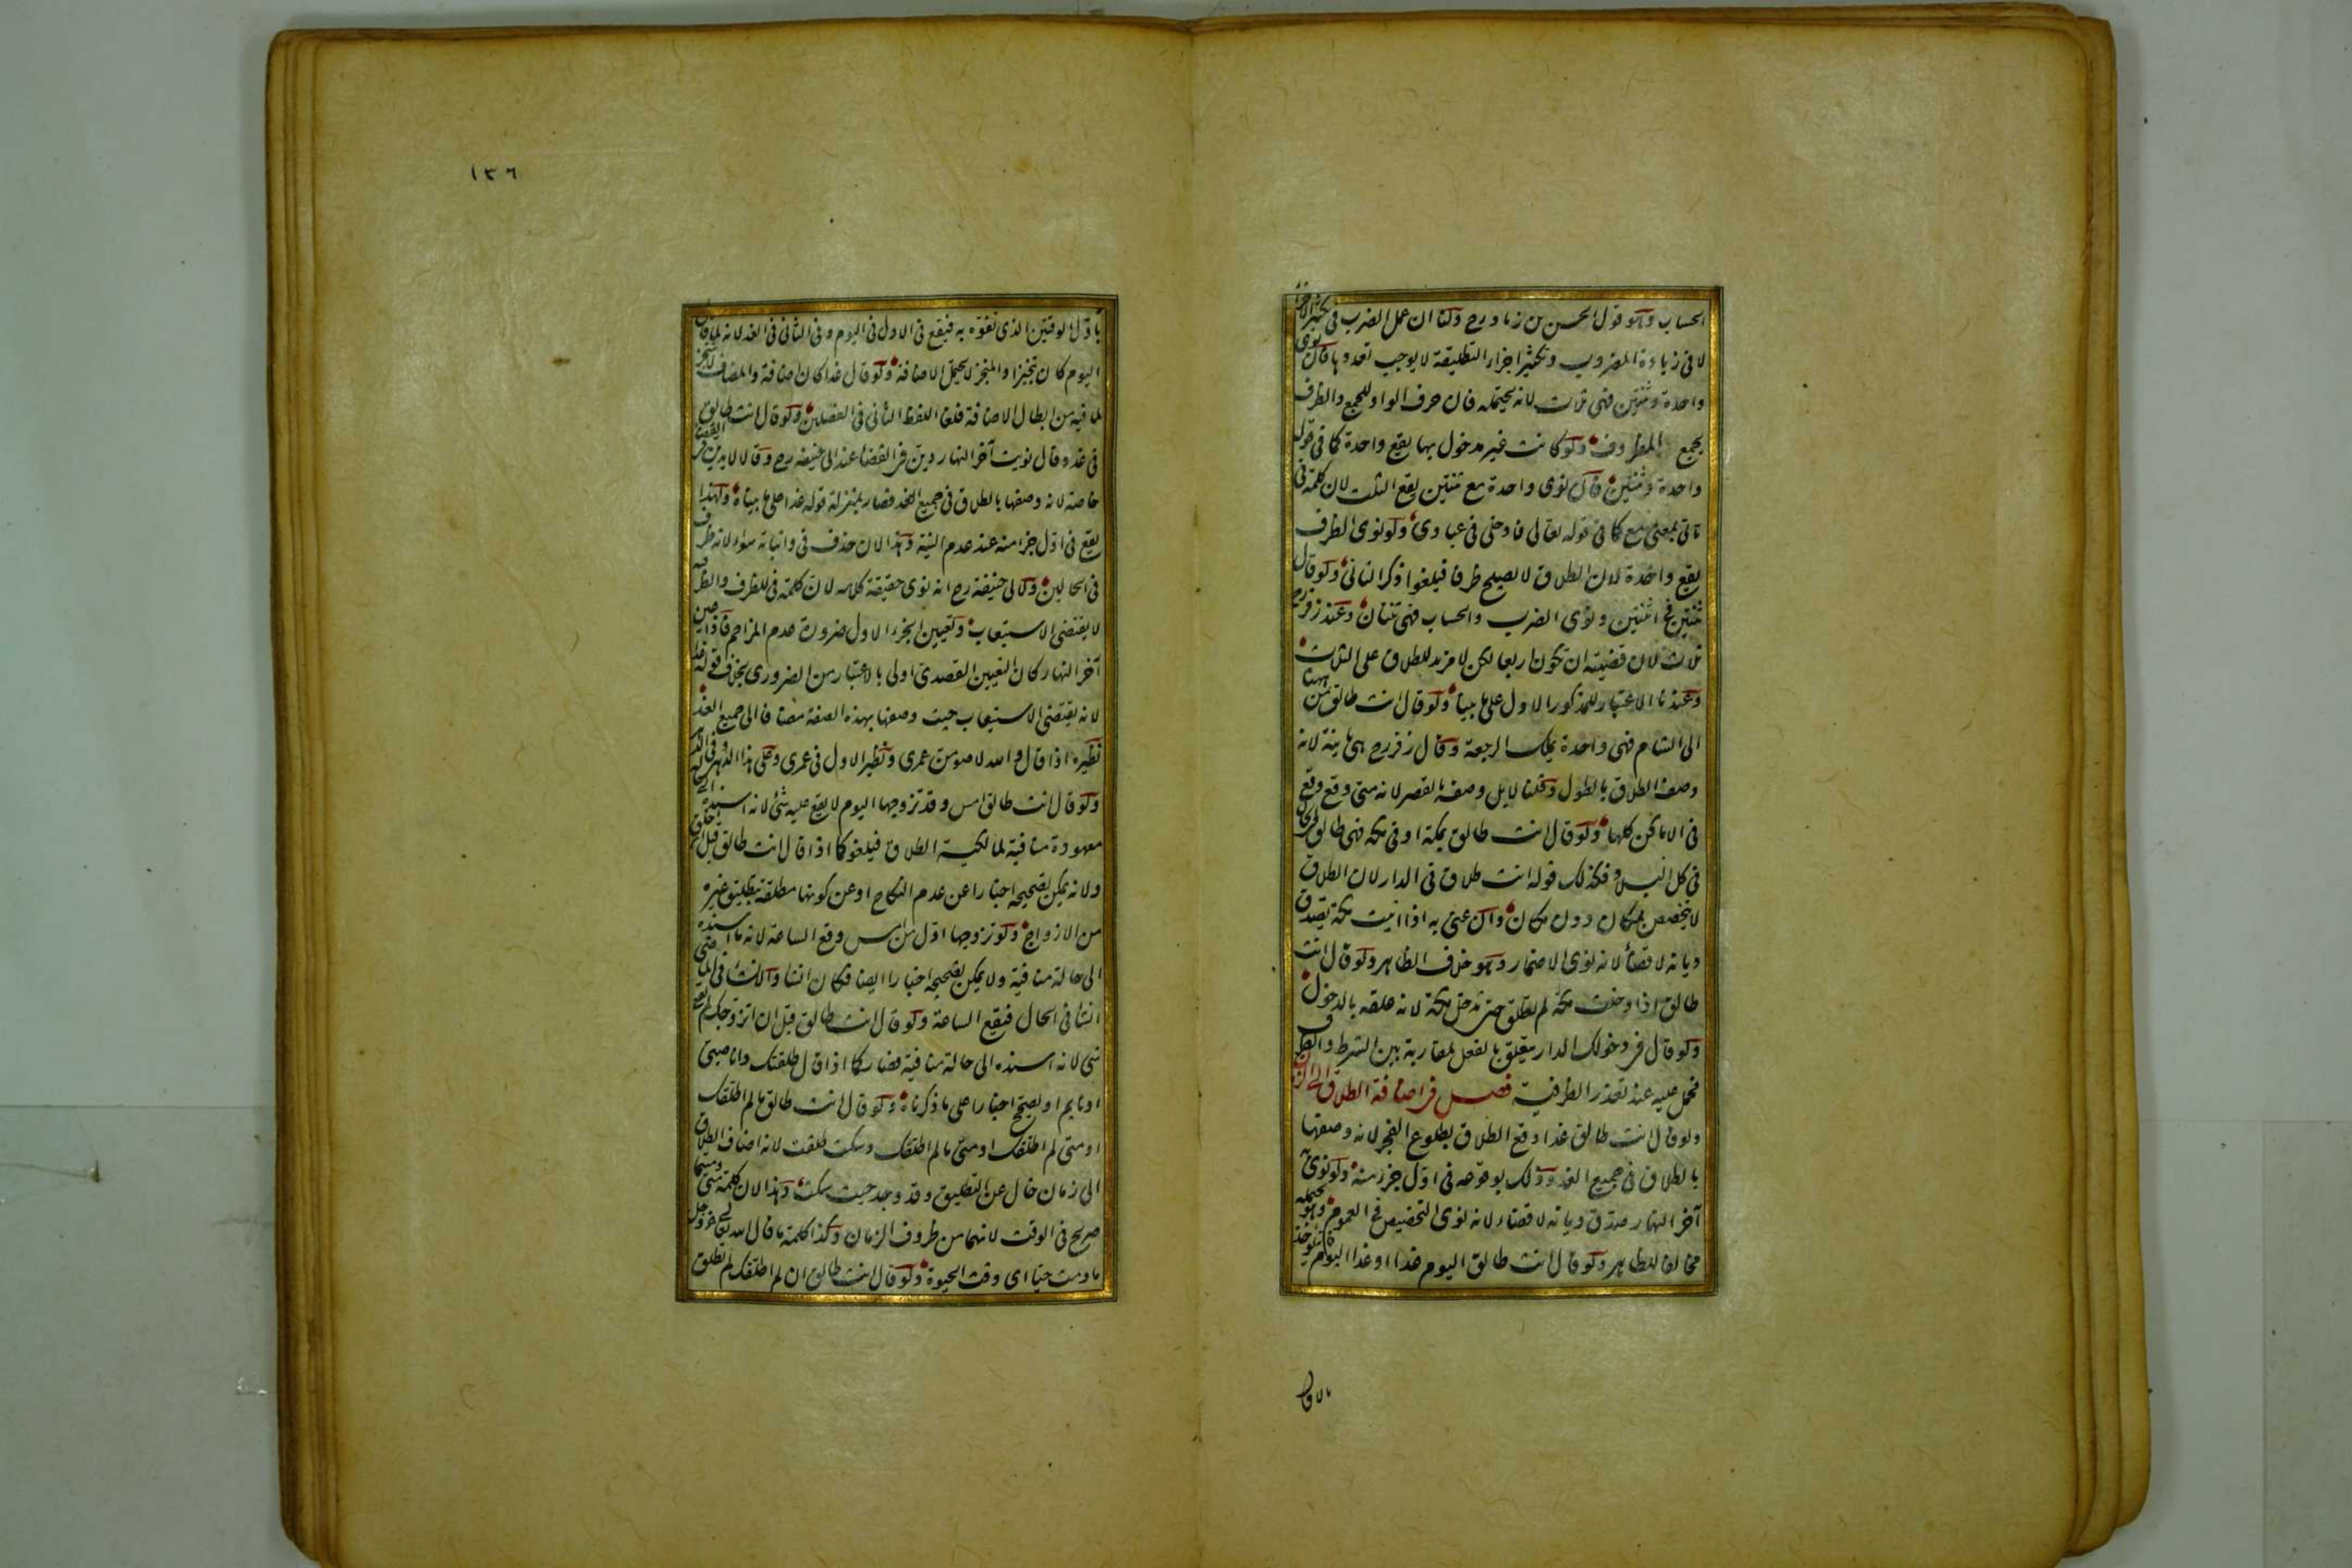 الحساب وهو قول الحسن بن زياد رح ولنا ان عمل الضرب في تكثير الاجزاء
لا في زيادة المضروب وتكثير اجزاء التطليقة لا يوجب تعددها فان نوى
واحدة وثنتين فهي ثلاث لانه يحتمله فان حرف الواو للجمع والظرف
يجمع المظروف ولو كانت غير مدخول بها يقع واحدة كما في قوله
واحدة وثنتين فان نوى واحدة مع ثنتين يقع الثلث لان كلمة في
تاتي بمعنى مع كما في قوله تعالى فادخلي في عبادي ولو نوى الظرف
يقع واحدة لان الطلاق لا يصلح ظرفا فيلغوا ذكر الثاني ولو قال
ثنتين في اثنتين ونوى الضرب والحساب فهي ثنتان وعند زفر رح
ثلاث لان قضيته ان تكون اربعا لكن لا مزيد للطلاق على الثلاث
وعندنا الاعتبار للمذكور الاول على ما بينا ولو قال انت طالق من ههنا
الى الشام فهي واحدة يملك الرجعة وقال زفر رح هي باينة لانه
وصف الطلاق بالطول وقلنا لا بل وصفه بالقصر لانه متى وقع وقع
في الاماكن كلها ولو قال انت طالق بمكة او في مكة فهي طالق في الحال
في كل البلاد وكذلك قوله انت طلاق في الدار لان الطلاق
لا يتخصص بمكان دون مكان وان عنى به اذا اتيت مكة يصدق
ديانة لا قضاء لانه نوى الاضمار وهو خلاف الظاهر ولو قال انت
طالق اذا دخلت مكة لم تطلق حتى تدخل مكة لانه علقه بالدخول
ولو قال في دخولك الدار يتعلق بالفعل لمقاربة بين الشرط والظرف
فحمل عليه عند تعذر الظرفية فصل في اضافة الطلاق الى الزمان
ولو قال انت طالق غدا وقع الطلاق بطلوع الفجر لانه وصفها
بالطلاق في جميع الغد وذلك بوقوعه في اول جزء منه ولو نوى به
آخر النهار صدق ديانة لا قضاء لانه نوى التخصيص في العموم وهو يحتمله
مخالفا للظاهر ولو قال انت طالق اليوم غدا او غدا اليوم فانه يؤخذ
١٣٦
باول الوقتين الذي تفوه به فيقع في الاول في اليوم وفي الثاني في الغد لانه لما قال
اليوم كان تنجيزا والمنجز لا يحتمل الاضافة ولو قال غدا كان اضافة والمضاف لا ينجز
لما فيه من ابطال الاضافة فلغا اللفظ الثاني في الفصلين ولو قال انت طالق
في غد وقال نويت آخر النهار دين في القضا عند ابي حنيفة رح وقالا لا يدين في القضا
خاصة لانه وصفها بالطلاق في جميع الغد فصار بمنزلة قوله غدا على ما بيناه ولهذا
يقع في اول جزء منه عند عدم النية وهذا لان حذف في واثباته سواء لانه ظرف
في الحالين ولابي حنيفة رح انه نوى حقيقة كلامه لان كلمة في للظرف والظرفية
لا يقتضي الاستيعاب وتعيين الجزء الاول ضرورة عدم المزاحم فاذا عين
آخر النهار كان التعيين القصدي اولى بالاعتبار من الضروري بخلاف قوله غدا
لانه يقتضي الاستيعاب حيث وصفها بهذه الصفة مضافا الى جميع الغد
نظيره اذا قال والله لاصومن عمري ونظير الاول في عمري وعلى هذا الدهر وفي الدهر
ولو قال انت طالق امس وقد تزوجها اليوم لا يقع عليه شيء لانه اسنده الى حالة
معهودة منافية لمالكية الطلاق فيلغو كما اذا قال انت طالق قبل ان اخلق
ولانه يمكن تصحيحه اخبارا عن عدم النكاح او عن كونها مطلقة بتطليق غيره
من الازواج ولو تزوجها اول من امس وقع الساعة لانه ما اسنده
الى حالة منافية ولا يمكن تصحيحه اخبارا ايضا فكان انشا والانشا في الماضي
انشا في الحال فيقع الساعة ولو قال انت طالق قبل ان اتزوجك لم يقع
شي لانه اسنده الى حالة منافية فصار كما اذا قال طلقتك وانا صبي
او نايم او يصح اخبارا على ما ذكرناه ولو قال انت طالق ما لم اطلقك
او متى لم اطلقك او متى ما لم اطلقك وسكت طلقت لانه اضاف الطلاق
الى زمان خال عن التطليق وقد وجد حيث سكت وهذا لان كلمة متى ومتى ما
صريح في الوقت لانهما من ظروف الزمان وكذا كلمة ما قال الله تعالى عز وجل
ما دمت حيا اى وقت الحيوة ولو قال انت طالق ان لم اطلقك لم تطلق